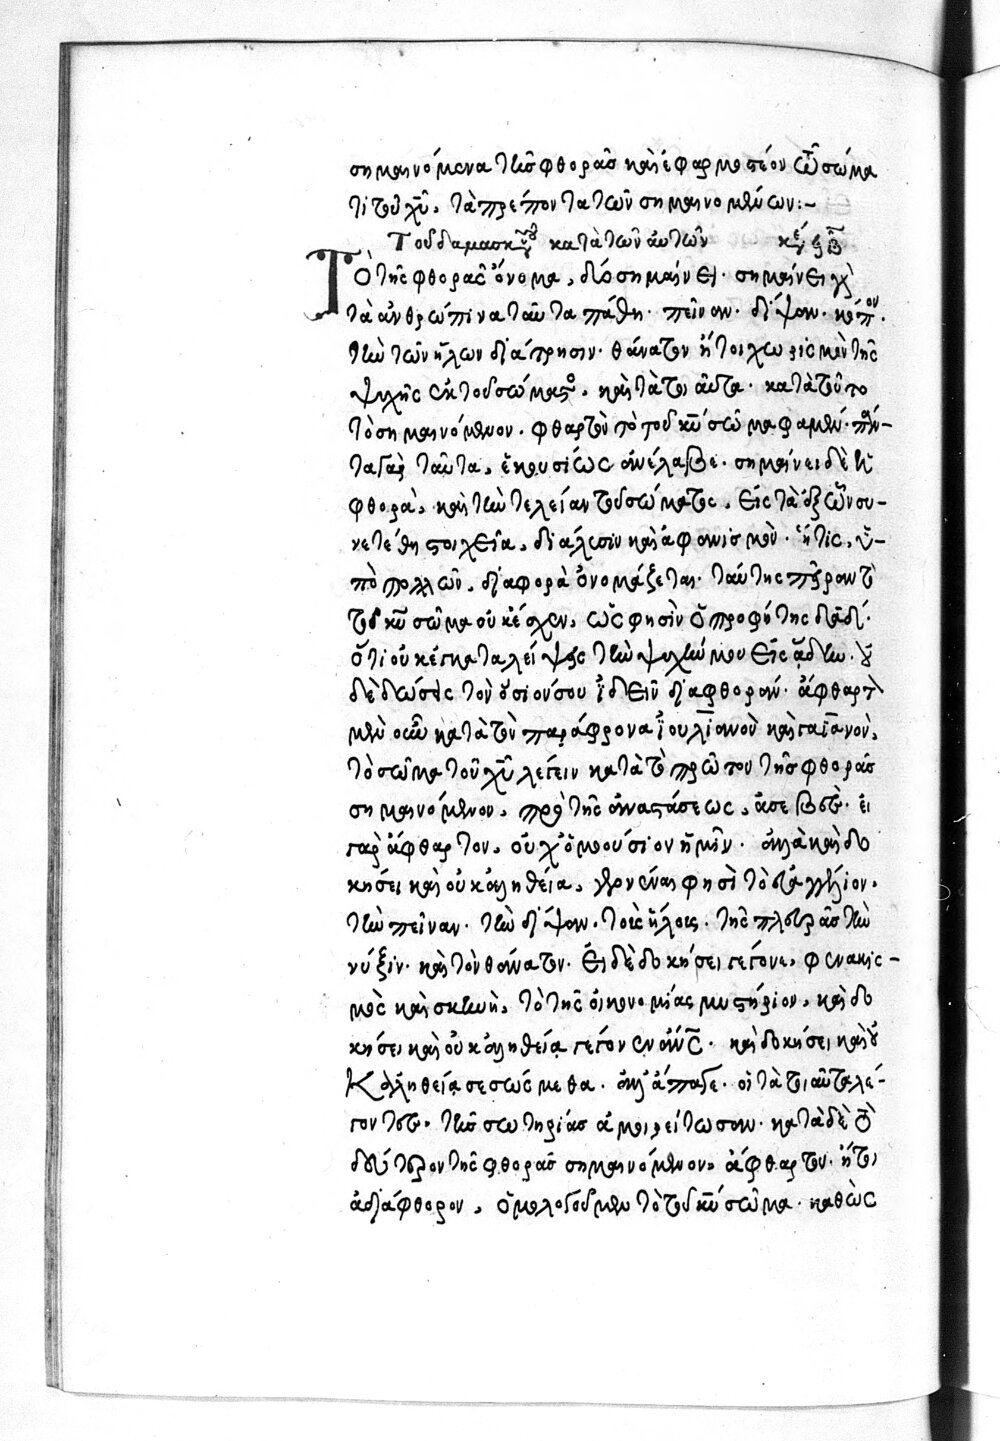 σημαινόμενα τῆς φθορᾶς καὶ ἐφαρμοστέον τῶ σώματι τοῦ χῦ, τὰ πρέποντα τῶν σημαινομένων:~
Τοῦ δαμασκηνοῦ κατὰ τῶν αὐτῶν κεφ
Τὸ τῆς φθορᾶς ὄνομα, δύο σημαίνει· σημαίνει γὰρ
τὰ ἀνθρώπινα ταῦτα πάθη· πεῖναν· δίψαν· κόπον·
τὴν τῶν ἥλων διάτρησιν· θάνατον ἤτοι χωρισμὸν τῆς
ψυχῆς ἐκ τοῦ σώματος, καὶ τὰ τοιαῦτα· κατὰ τοῦτο
τὸ σημαινόμενον, φθαρτὸν τὸ τοῦ κῦ σῶμα φαμέν· πάν-
τα γὰρ ταῦτα, ἑκουσίως ἀνέλαβε· σημαίνει δὲ ἡ
φθορὰ, καὶ τὴν τελείαν τοῦ σώματος, εἰς τὰ ἐξ ὧν συ-
νετέθη στοιχεῖα, διάλυσιν καὶ ἀφανισμὸν· ἥτις, ὑ-
πὸ πολλῶν, διαφορὰ ὀνομάζεται· ταύτης πεῖραν τὸ
τοῦ κῦ σῶμα οὐκ ἔσχεν, ὥς φησὶν ὁ προφήτης δαδί·
ὅτι οὐκ ἐγκαταλείψεις τὴν ψυχήν μου εἰς ἅδην· οὐ
δὲ δώσεις τὸν ὅσιόν σου ἰδεῖν διαφθοράν· ἄφθαρτον
μὲν οὖν κατὰ τὸν παράφρονα ἰουλιανὸν καὶ γαϊανὸν,
τὸ σῶμα τοῦ χῦ λέγειν κατὰ τὸ πρῶτον τῆς φθορᾶς
σημαινόμενον, πρὸ τῆς ἀναστάσεως, ἀσεβὲς· εἰ
γὰρ ἄφθαρτον, οὐχ ὁμοούσιον ἡμῖν· ἀλλὰ καὶ δο
κήσει καὶ οὐκ ἀληθεία, γεγονέναι φησὶ τὸ εὐαγγέλιον,
τὴν πεῖναν· τὴν δίψαν· τοὺς ἥλους· τῆς πλευρᾶς τὴν
νύξιν· καὶ τὸν θάνατον· Εἰ δὲ δοκήσει γέγονε, φενακισ-
μὸς καὶ σκηνὴ, τὸ τῆς οἰκονομίας μυστήριον, καὶ δο
κήσει καὶ οὐκ ἀληθεία γέγονεν ἄνος· καὶ δοκήσει καὶ οὐ
κ ἀληθεία σεσώσμεθα· ἀλλ' ἄπαγε· οἱ τὰ τοιαῦτα λέ-
γοντες, τῆς σωτηρίας ἀμοιρείτωσαν· κατὰ δὲ τὸ
δεύτερον τῆς φθορᾶς σημαινόμενον, ἄφθαρτον· ἤτοι
ἀδιάφθορον, ὁμολογοῦμεν τὸ τοῦ κῦ σῶμα· καθὼς